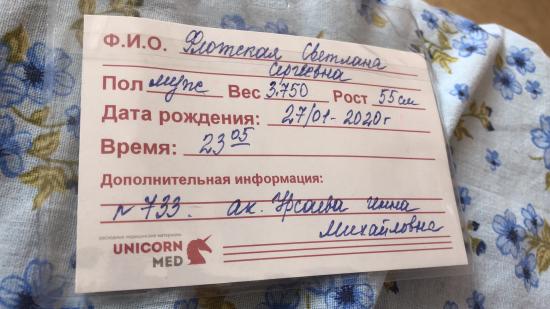 Ф.И.О. Флотская Светлана
Сергеевна
Пол муж Вес 3.750 Рост 55 см
Дата рождения: 27/01-2020 г
Время: 23 05
Дополнительная информация:
№ 733. ак. Инна
Михайловна
расходные медицинские материалы
UNICORN
MED